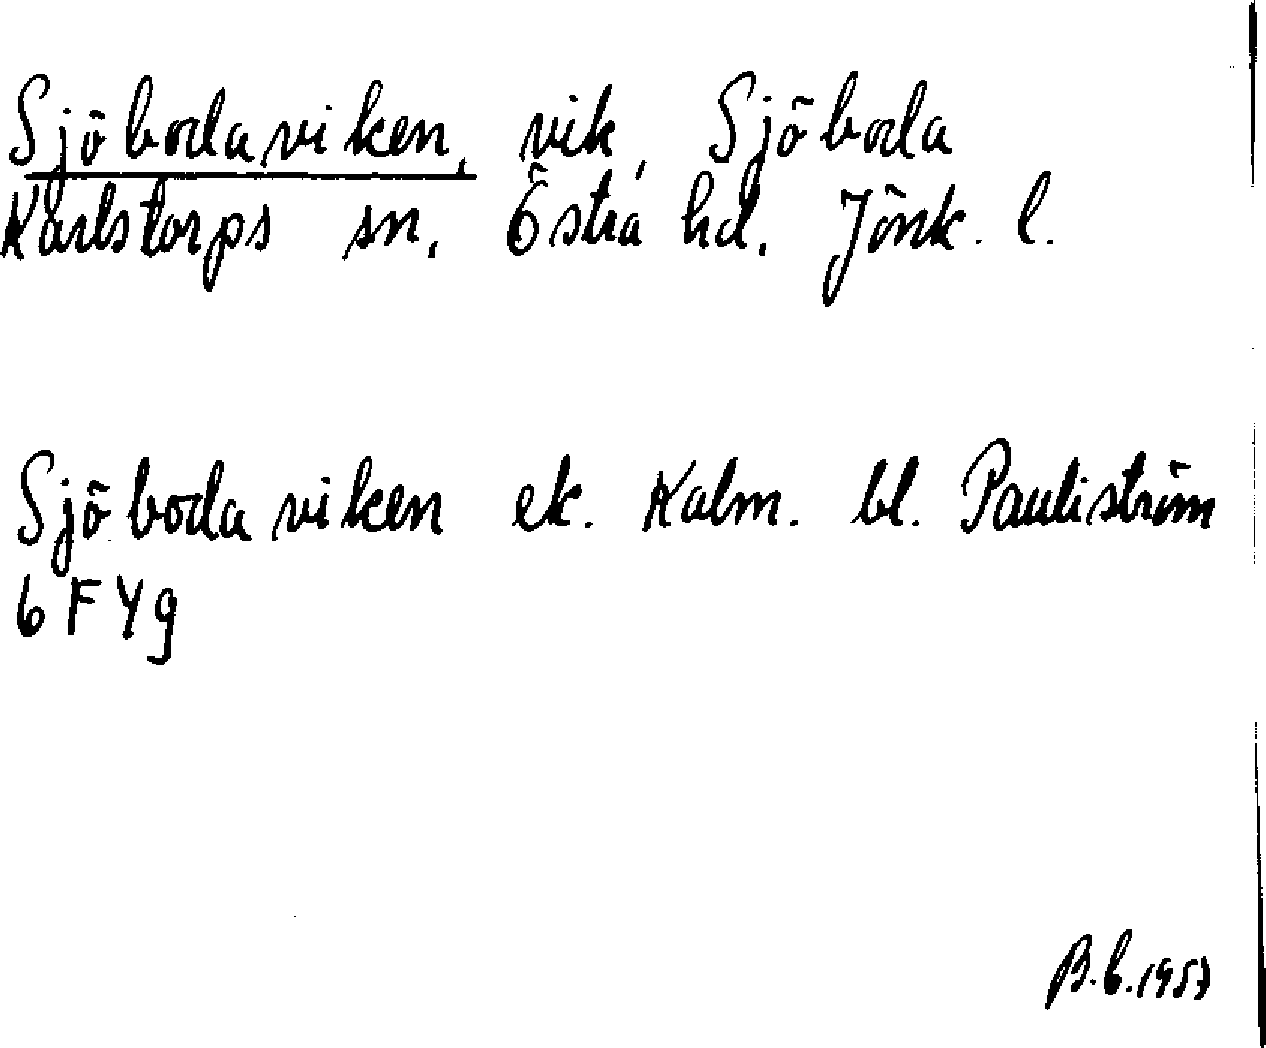 Sjöbodaviken, vik, Sjöboda
Karlstorps sn, Östra hd, Jönk. l.
Sjöbodaviken ek. Kalm. bl. Pauliström
6 F Y g
B.G. 1957